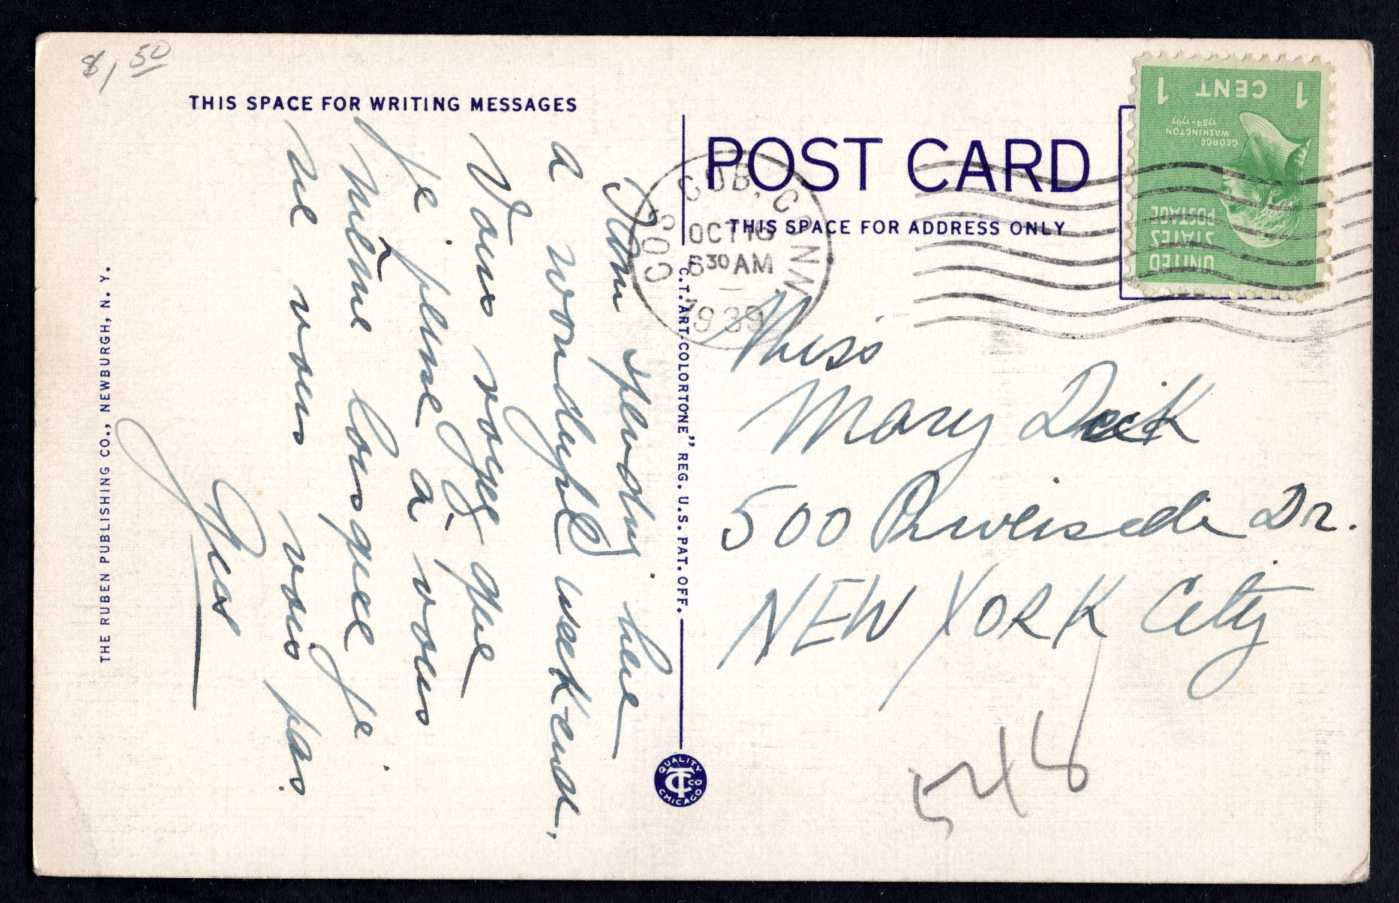 8,50
THIS SPACE FOR WRITING MESSAGES
Am spending here
a wonderful week-end.
Vous voyez que
je pense à vous
même lorsque je
ne vous vois pas.
Gus
THE RUBEN PUBLISHING CO., NEWBURGH, N. Y.
C.T. ART-COLORTONE" REG. U.S. PAT. OFF.
QUALITY
CT CO
CHICAGO
POST CARD
THIS SPACE FOR ADDRESS ONLY
COS COB, CONN.
OCT 16
6 30 AM
1939
UNITED
STATES
POSTAGE
GEORGE
WASHINGTON
1789-1797
1 CENT 1
Miss
Mary Dick
500 Riverside Dr.
NEW YORK City
548